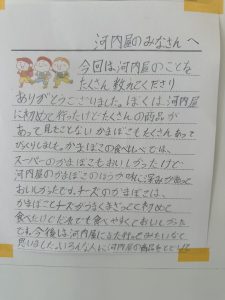 河内屋のみなさんへ
今回は河内屋のことを
たくさん教えてくださり
ありがとうございました。ぼくは、河内屋
に初めて行ったけどたくさんの商品が
あって見たことないかまぼこもたくさんあって
びっくりしました。かまぼこの食べくらべでは、
スーパーのかまぼこもおいしかったけど
河内屋のかまぼこのほうが味に深みがあって
おいしかったです。チーズのかまぼこは、
かまぼことチーズがうまくまざってて初めて
食べたけどだれでも食べやすくておいしかった
です。今後は河内屋にまた行ってみたいなと
思いました。いろんな人に河内屋の商品を